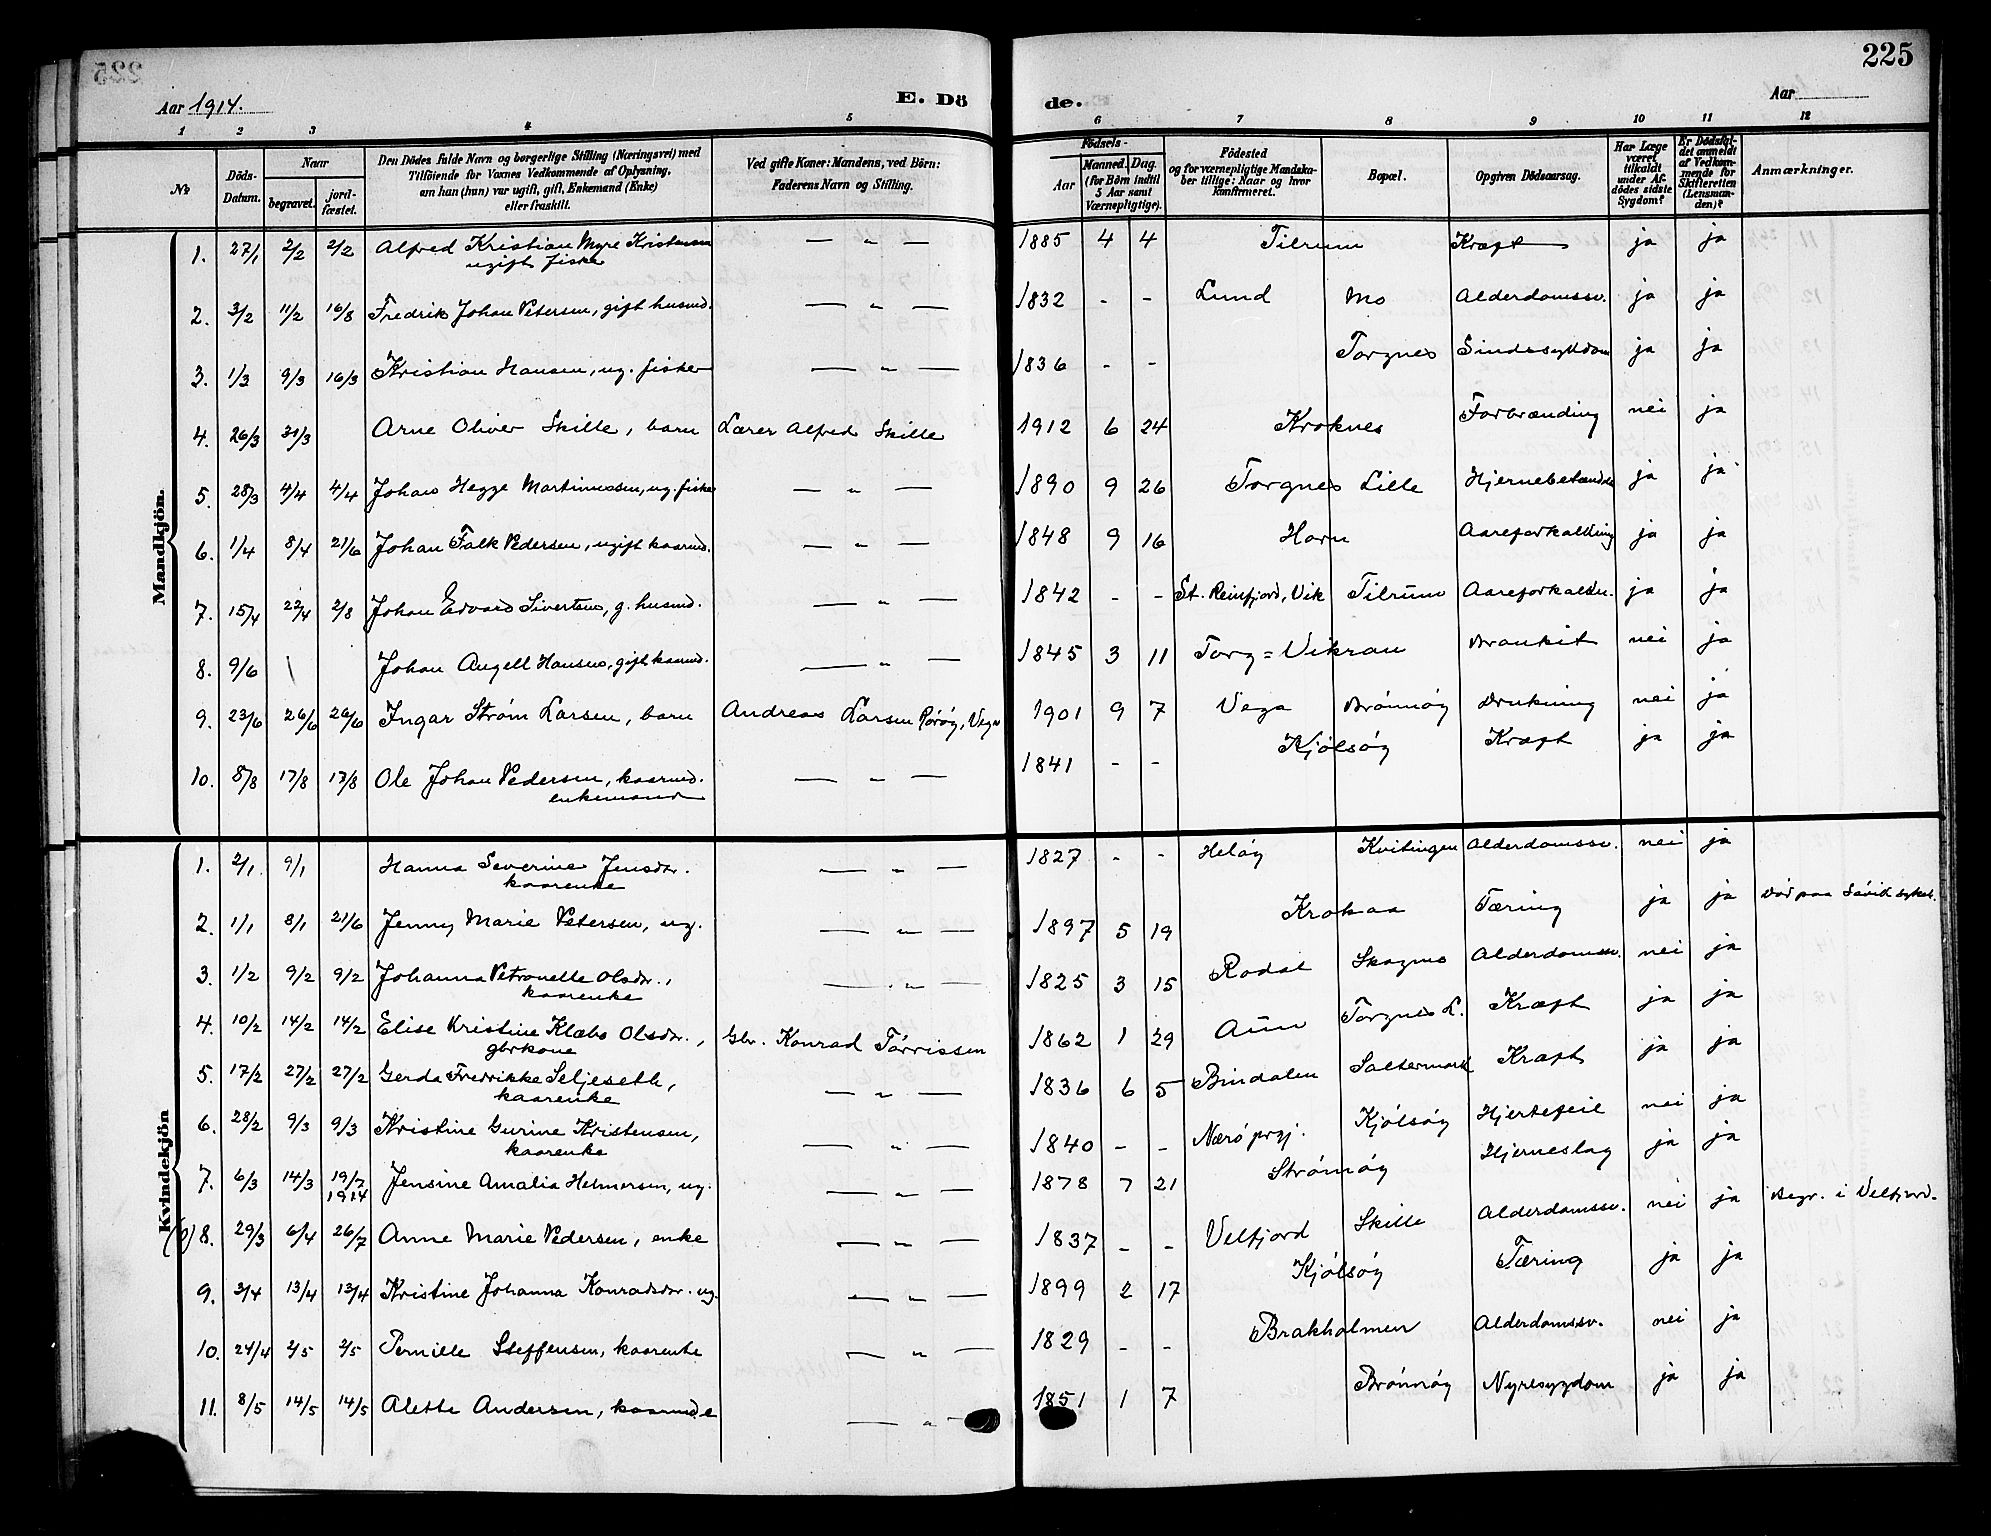 225
Aar 1914. E. Dö de. Aar
1 2 3 4 5 6 7 8 9 10 11 12
№ Döds-Datum. Naar begravet. jordfæstet. Den Dödes fulde Navn og borgerlige Stilling (Næringsvei) med Tilföiende for Voxnes Vedkommende af Oplysning, om han (hun) var ugift, gift, Enkemand (Enke) eller fraskilt. Ved gifte Koner: Mandens, ved Börn: Faderens Navn og Stilling. Födsels- Aar Maaned. Dag. (for Börn indtil 5 Aar samt Værnepligtige). Födested og for værnepligtige Mandskaber tillige: Naar og hvor konfirmeret. Bopæl. Opgiven Dödsaarsag. Har Læge været tilkaldt under Afdödes sidste Sygdom? Er Dödsfaldet anmeldt af Vedkommende for Skifteretten (Lensmanden)? Anmærkninger.
Mandkjön.
1. 27/1 2/2 2/2 Alfred Kristian Myre Kristensen ugift fisker — " — 1885 4 4 Tilrum Kræft ja ja
2. 3/2 11/2 16/8 Fredrik Johan Petersen, gift husmd. — " — 1832 - - Lund Mo Alderdomssv. ja ja
3. 1/3 9/3 16/3 Kristian Hansen, ug. fisker — " — 1836 - - Torgnes Sindssykdom ja ja
4. 26/3 31/3 Arne Oliver Skille, barn Lærer Alfred Skille 1912 6 24 Kroknes Forbrænding nei ja
5. 28/3 4/4 4/4 Johan Hegge Martinussen, ug. fisker — " — 1890 9 26 Torgnes Lille Hjernebetændelse ja ja
6. 1/4 8/4 21/6 Johan Falk Pedersen, ugift kaarmd. — " — 1848 9 16 Horn Aareforkalkning ja ja
7. 15/4 22/4 2/8 Johan Edvard Sivertsen, g. husmd. — " — 1842 - - St. Reinfjord, Vik Tilrum Aareforkalkn. ja ja
8. 9/6 \ Johan Angell Hansen, gift kaarmd. — " — 1845 3 11 Torg = Vikran Bronkit nei ja
9. 23/6 26/6 26/6 Ingar Strøm Larsen, barn Andreas Larsen Rørøy, Vega 1901 9 7 Vega Brønnøy Drukning nei ja
10. 8/8 17/8 17/8 Ole Johan Pedersen, kaarmd. enkemand — " — 1841 - - Kjølsøy Kræft ja ja
Kvindekjön
1. 2/1 9/1 Hanna Severine Jensdtr. kaarenke — " — 1827 - - Heløy Kvitingen Alderdomssv. nei ja
2. 1/1 8/1 21/6 Jenny Marie Petersen, ug. — " — 1897 5 19 Krokaa Tæring ja ja Død paa Søvik sykeh.
3. 1/2 9/2 9/2 Johanna Petronelle Olsdtr., kaarenke — " — 1825 3 15 Rodal Skogmo Alderdomssv. nei ja
4. 10/2 14/2 14/2 Elise Kristine Klæbo Olsdtr., gbrkone Gbr. Konrad Tørrissen 1862 1 29 Aun Torgnes L. Kræft ja ja
5. 17/2 27/2 27/2 Gerda Fredrikke Seljeseth, kaarenke — " — 1836 6 5 Bindalen Saltermark Kræft ja ja
6. 28/2 9/3 9/3 Kristine Gurine Kristensen, kaarenke — " — 1840 - - Nærø prgj. Kjølsøy Hjertefeil nei ja
7. 6/3 14/3 19/7 1914 Jensine Amalia Helmersen, ug. — " — 1878 7 21 Strømøy Hjerneslag ja ja
8. 29/3 6/4 26/7 Anne Marie Pedersen, enke — " — 1837 - - Velfjord Skille Alderdomssv. nei ja Begr. i Velfjord.
9. 3/4 13/4 13/4 Kristine Johanna Konradsdtr. ug. — " — 1899 2 17 Kjølsøy Tæring ja ja
10. 24/4 2/5 2/5 Pernille Steffensen, kaarenke — " — 1829 - - Brakholmen Alderdomssv. nei ja
11. 8/5 14/5 14/5 Alette Andersen, — " — 1851 1 7 Brønnøy Nyresygdom ja ja